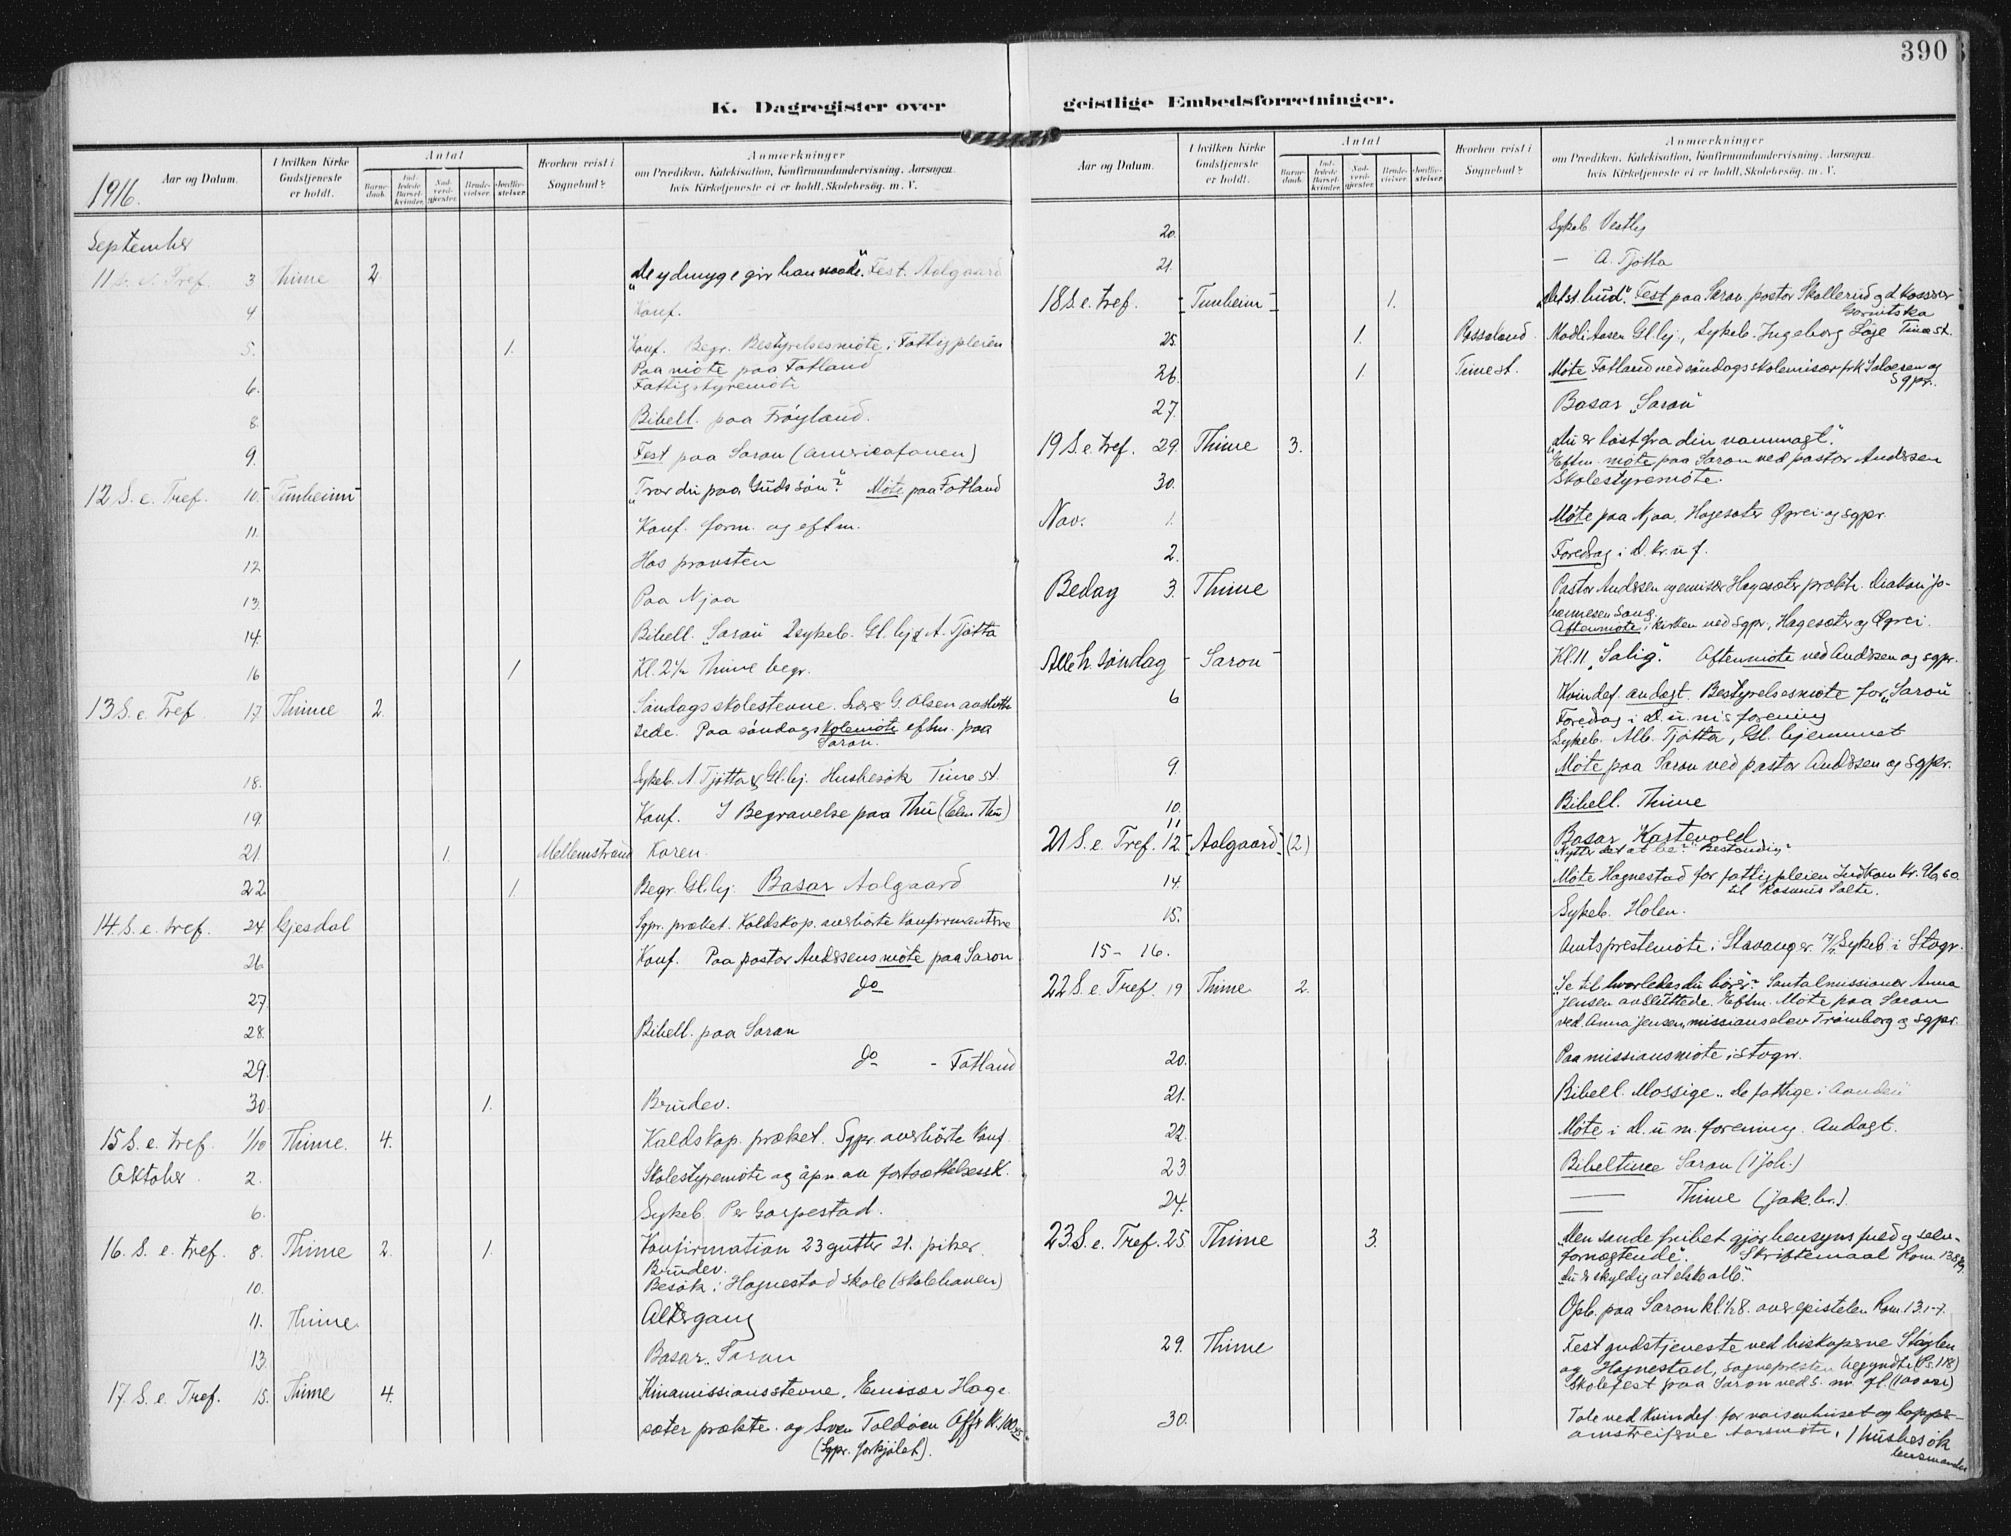 390
K. Dagregister over
geistlige Embedsforretninger.
Aar og Datum.
I hvilken Kirke Gudstjeneste er holdt.
Antal
Barnedaab.
Indledede Barselkvinder.
Nadverdgjester.
Brudevielser.
Jordfæstelser.
Hvorhen reist i Sognebud?
Anmærkninger
om Prædiken, Katekisation, Konfirmandundervisning, Aarsagen
hvis Kirketjeneste ei er holdt, Skolebesøg, m. V.
1916.
September
11 s. e. Tref. 3 Thime 2. "De ydmyge gir han naade". Fest. Aalgaard
4 Konf.
5. 1. Konf. Begr. Bestyrelsesmöte i Fattigpleien
Paa möte paa Fotland
6. Fattigstyremöte
8 Bibell. paa Fröyland.
9. Fest paa Saron (Americafonen)
12 S. e. Tref. 10. - Tunheim - "Tror du paa Guds sön"? Möte paa Fotland
11. Konf. form. og eftm.
12 Hos provsten
13. Paa Njaa
14. Bibell. "Saron" 2 sykeb. Gl. hj. & A. Tjötta
16 1 Kl. 2½ Thime begr.
13 S. e. Tref. 17 Thime 2. Söndagsskolestevne. Lærer G. Olsen avslut
tede. Paa söndagsskolemöte eftm. paa
Saron.
18. Sykeb. A. Tjötta & Gl. hj. Husbesök Time st.
19. Konf. I Begravelse paa Thu (Elen Thu)
21. 1. Mellemstrand Karen.
22 1. Begr. Gl. hj. Basar Aalgaard
14. S. e. tref. 24 Gjesdal Sgpr. præket. Kaldskap. overhörte konfirmanterne
26. Konf. Paa pastor Andersens möte paa Saron
27. do
28. Bibell. paa Saron
29. do - Fotland
30. 1. Brudev.
15 S. e. tref. 1/10 Thime. 4. Kaldskap. præket. Sgpr. overhörte konf.
Oktober 2. Skolestyremöte og åpn. av fortsættelsessk.
6. Sykeb. Per Garpestad.
16. S. e. tref. 8. Thime 2. 1. Konfirmation 23 gutter 21. piker.
Brudev.
10. Besök i Hognestad skole (skolehaven)
11. Thime. Altergang
13. Basar. Saron
17. S. e. Tref. 15. Thime 4. Kinamissionsstevne. Emisær Hage
sæter prækte. og Sven Foldöen Offr Kr. 100
(Sgpr. forkjölet).
Aar og Datum.
I hvilken Kirke Gudstjeneste er holdt.
Antal
Barnedaab.
Indledede Barselkvinder.
Nadverdgjester.
Brudevielser.
Jordfæstelser.
Hvorhen reist i Sognebud?
Anmærkninger
om Prædiken, Katekisation, Konfirmandundervisning, Aarsagen
hvis Kirketjeneste ei er holdt, Skolebesøg, m. V.
20. Sykeb. Vestly
21. — A. Tjötta
18 S. e. tref. - Tunheim - 1. "Det st. bud". Fest paa Saron. pastor Skollerud og
25. 1. Rossaland Modli Aasen Gl. hj., Sykeb. Ingeborg Löge Time st.
26. 1. Time st. Möte Fotland ved söndagsskolemisær frk Salvesen og
sgpr.
27. Basar "Saron"
19 S. e. tref. 29. Thime 3. "Du er löst fra din vanmagt".
Eftm. möte paa Saron ved pastor Andersen
30. Skolestyremöte.
Nov. 1. Möte paa Njaa, Hagesæter Øgrei og sgpr.
2. Foredrag i D. kr. u. f.
Bedag 3. Thime Pastor Andersen og emisær Hagesæter prækte. Diakon Jo-
hannesen sang
Aftenmöte i kirken ved sgpr., Hagesæter og Øgrei.
Alle h. söndag - Saron - Kl. 11 "Salig". Aftenmöte ved Andersen og sgpr.
6 Kvindef. andagt. Bestyrelsesmöte for "Saron"
Foredrag i D. u. m's forening
Sykeb. Alb. Tjötta, Gl. hjemmet
9. Möte paa Saron ved pastor Andersen og sgpr.
10. Bibell. Thime
11. Basar Kartevold
21 S. e. Tref. 12. - Aalgaard - (2) "Nytter det at be?" "Bestandig"
14. Möte Hognestad for fattigpleien Indkom Kr.
til Rasmus Salte.
15. Sykeb. Holen.
15 - 16. Amtsprestemöte i Stavanger. Sykeb. i Stvgr.
22 S. e. Tref. 19 Thime 2. "Se til hvorledes du hörer". Santalmissionær Anna
Jensen avsluttede. Eftm. Möte paa Saron
ved Anna Jensen, missionselev Trömborg og sgpr.
20. Paa missionsmöte i Stvgr.
21. Bibell. Mossige "De fattige i aanden"
22. Möte i D. u. m. forening. Andagt.
23 Bibeltime Saron (1 Joh.)
24. — Thime (Jak. br.)
23. S. e. Tref. 25. Thime 3. "Den sande frihet gjör hensynsfuld og selv-
fornægtende". Skriftemaal Rom. 13.8 flg.
"du er skyldig at elske alle".
Opb. paa Saron kl. ½8. over epistelen Rom. 13. 1-7.
29. Thime Festgudstjeneste ved biskoperne Stöylen
og Hognestad, sognepresten begyndte (Ps. 118)
Skolefest paa Saron ved s. m. gl.
30. Tale ved Kvindef. for vaisenhuset og lappe-
omstreiferne Aarsmöte, 1 husbesök
lensmanden